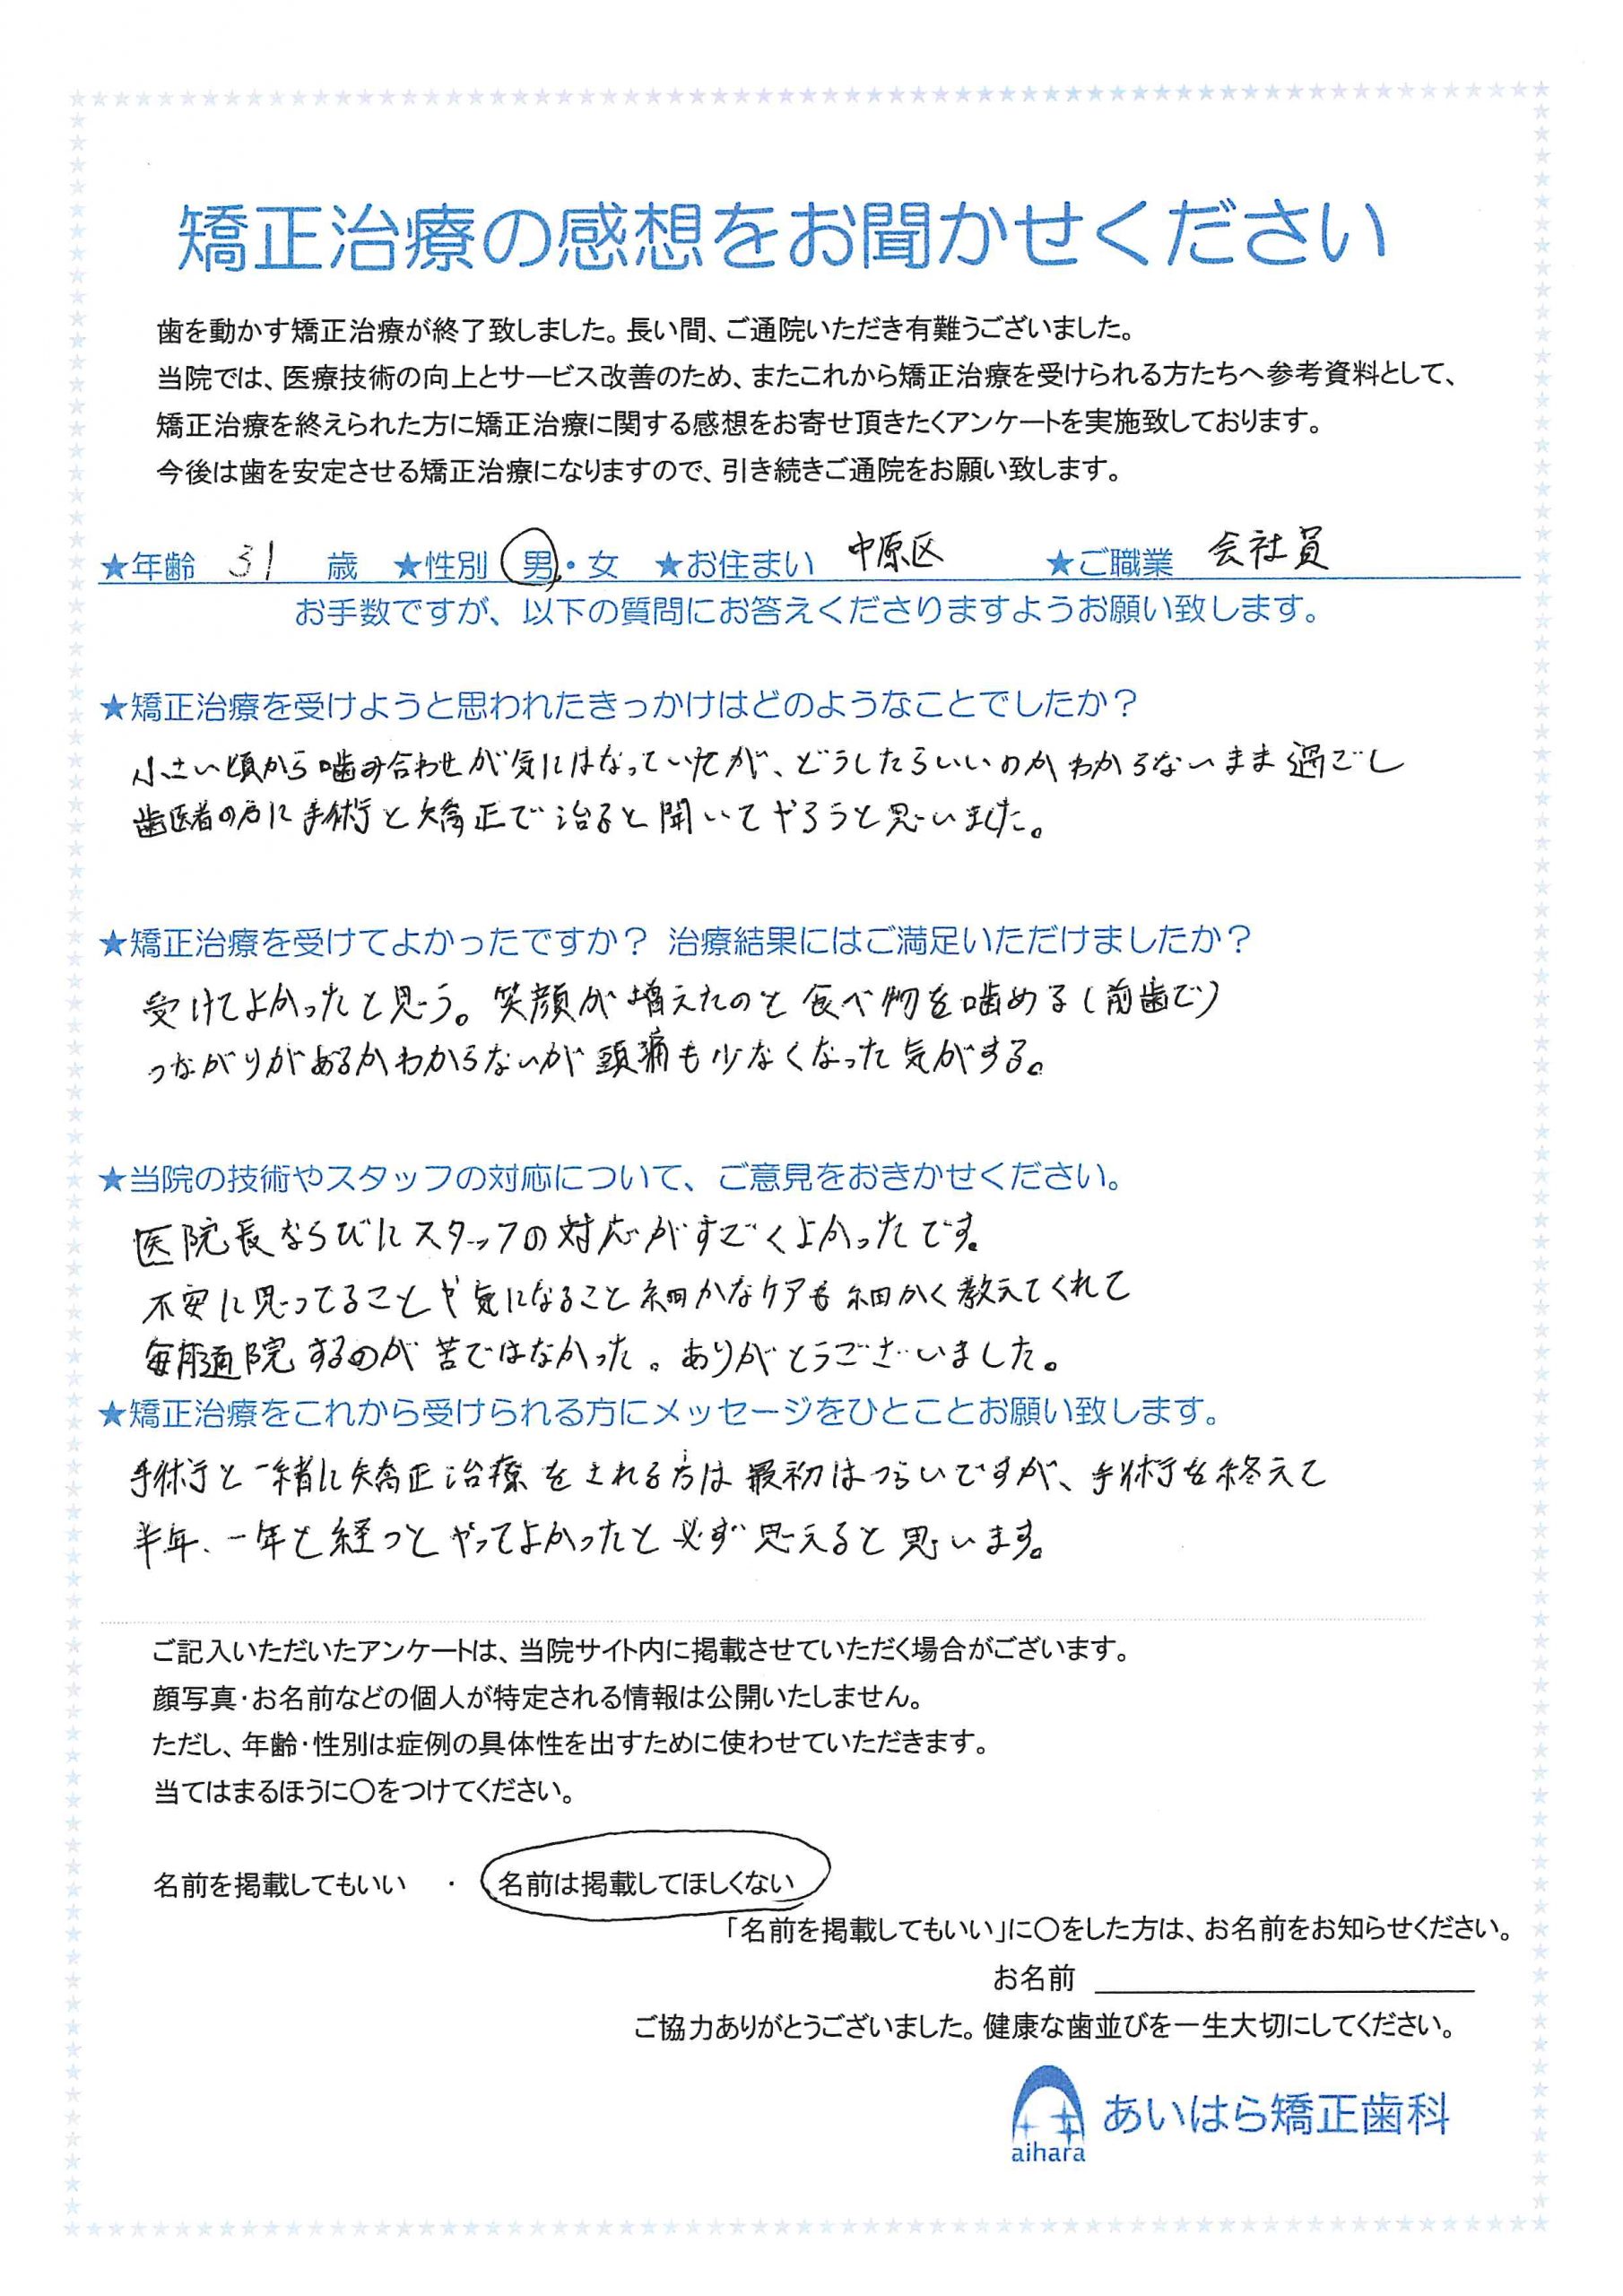 矯正治療の感想をお聞かせください
歯を動かす矯正治療が終了致しました。長い間、ご通院いただき有難うございました。
当院では、医療技術の向上とサービス改善のため、またこれから矯正治療を受けられる方たちへ参考資料として、
矯正治療を終えられた方に矯正治療に関する感想をお寄せ頂きたくアンケートを実施致しております。
今後は歯を安定させる矯正治療になりますので、引き続きご通院をお願い致します。
★年齢 31 歳 ★性別 男・女 ★お住まい 中原区 ★ご職業 会社員
お手数ですが、以下の質問にお答えくださりますようお願い致します。
★矯正治療を受けようと思われたきっかけはどのようなことでしたか？
小さい頃から噛み合わせが気にはなっていたが、どうしたらいいのかわからないまま過ごし
歯医者の方に手術と矯正で治ると聞いてやろうと思いました。
★矯正治療を受けてよかったですか？ 治療結果にはご満足いただけましたか？
受けてよかったと思う。笑顔が増えたのと食べ物を噛める(前歯で)
つながりがあるかわからないが頭痛も少なくなった気がする。
★当院の技術やスタッフの対応について、ご意見をおきかせください。
医院長ならびにスタッフの対応がすごくよかったです。
不安に思ってることや気になること細かなケアも細かく教えてくれて
毎月通院するのが苦ではなかった。ありがとうございました。
★矯正治療をこれから受けられる方にメッセージをひとことお願い致します。
手術と一緒に矯正治療をされる方は最初はつらいですが、手術を終えて
半年、一年と経つとやってよかったと必ず思えると思います。
ご記入いただいたアンケートは、当院サイト内に掲載させていただく場合がございます。
顔写真・お名前などの個人が特定される情報は公開いたしません。
ただし、年齢・性別は症例の具体性を出すために使わせていただきます。
当てはまるほうに〇をつけてください。
名前を掲載してもいい ・ 名前は掲載してほしくない
「名前を掲載してもいい」に〇をした方は、お名前をお知らせください。
お名前
ご協力ありがとうございました。健康な歯並びを一生大切にしてください。
あいはら矯正歯科
aihara